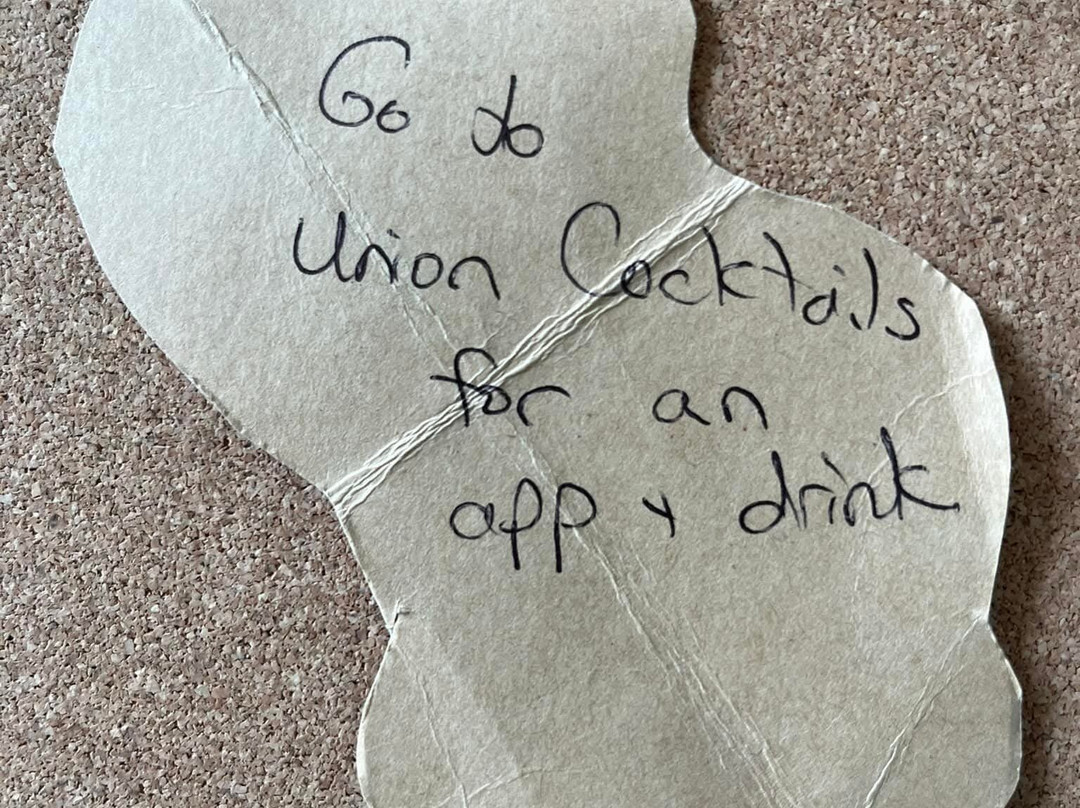 Go to
Union Cocktails
for an
app & drink